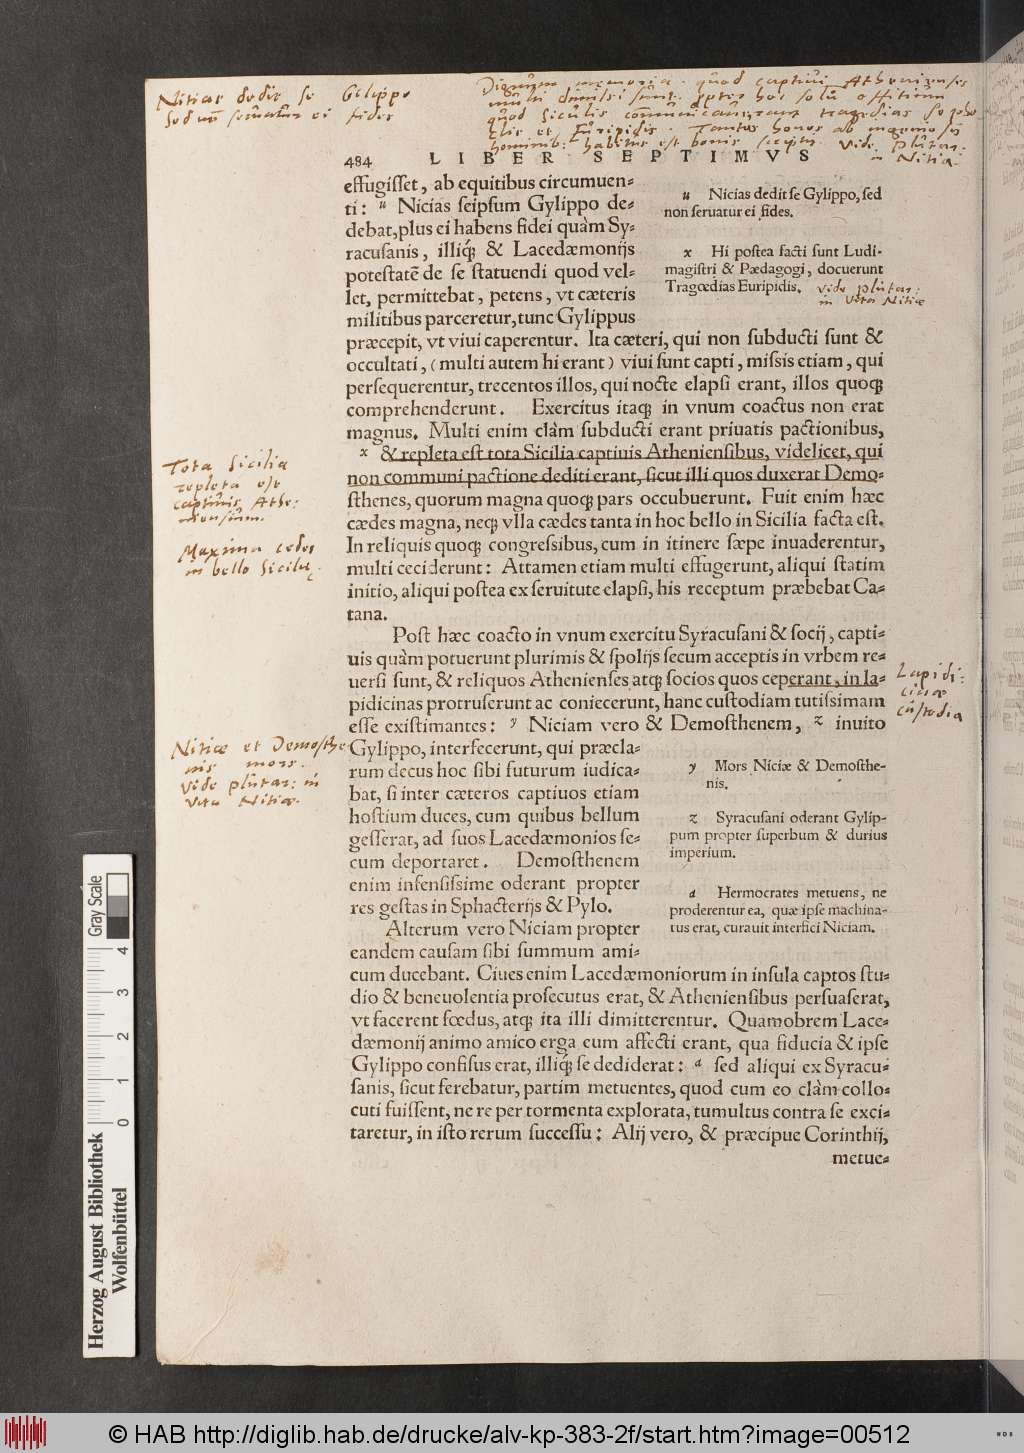 Nitias dedit se Gilippo
sed non servatur ei fides
Dignum memoria quod captivi Athenienses
multi dimissi sunt, propter hoc solum offitium
quod Siculis communicaverant tragedias Sopho
clis et Euripidis. Tantus honos ab
hominib: habitus est bonis scriptis. Vide Plutar.
in Nitia.
484 LIBER SEPTIMVS
effugiſſet, ab equitibus circumuen-
ti: u Nicias ſeipſum Gylippo de-
debat, plus ei habens fidei quàm Sy-
racuſanis, illiq́; & Lacedæmonijs
poteſtatē de ſe ſtatuendi quod vel-
let, permittebat, petens, vt cæteris
militibus parceretur, tunc Gylippus
u Nicias dedit ſe Gylippo, ſed
non ſeruatur ei fides.
x Hi poſtea facti ſunt Ludi-
magiſtri & Pædagogi, docuerunt
Tragœdias Euripidis.
vide plutar:
in vita Nitiæ
præcepit, vt viui caperentur. Ita cæteri, qui non ſubducti ſunt &
occultati, (multi autem hi erant) viui ſunt capti, miſsis etiam, qui
perſequerentur, trecentos illos, qui nocte elapſi erant, illos quoq;
comprehenderunt. Exercitus itaq; in vnum coactus non erat
magnus. Multi enim clàm ſubducti erant priuatis pactionibus,
x & repleta eſt tota Sicilia captiuis Athenienſibus, videlicet, qui
non communi pactione dediti erant, ſicut illi quos duxerat Demo-
ſthenes, quorum magna quoq; pars occubuerunt. Fuit enim hæc
cædes magna, neq; vlla cædes tanta in hoc bello in Sicilia facta eſt.
In reliquis quoq; congreſsibus, cum in itinere ſæpe inuaderentur,
multi ceciderunt: Attamen etiam multi effugerunt, aliqui ſtatim
initio, aliqui poſtea ex ſeruitute elapſi, his receptum præbebat Ca-
tana.
Tota Sicilia
repleta est
captivis Athe:
niensium.
Maxima cedes
in bello Sicilię.
Poſt hæc coacto in vnum exercitu Syracuſani & ſocij, capti-
uis quàm potuerunt plurimis & ſpolijs ſecum acceptis in vrbem re-
uerſi ſunt, & reliquos Athenienſes atq; ſocios quos ceperant, in la-
pidicinas protruſerunt ac coniecerunt, hanc cuſtodiam tutiſsimam
eſſe exiſtimantes: y Niciam vero & Demoſthenem, z inuito
Lapidi:
cinæ
custodia
Gylippo, interfecerunt, qui præcla-
rum decus hoc ſibi futurum iudica-
bat, ſi inter cæteros captiuos etiam
hoſtium duces, cum quibus bellum
geſſerat, ad ſuos Lacedæmonios ſe-
cum deportaret. Demoſthenem
enim infenſiſsime oderant propter
res geſtas in Sphacterijs & Pylo.
Alterum vero Niciam propter
eandem cauſam ſibi ſummum ami-
Nitiæ et Demosthe
nis mors.
vide plutar: in
vita Nitiæ.
y Mors Niciæ & Demoſthe-
nis.
z Syracuſani oderant Gylip-
pum propter ſuperbum & durius
imperium.
a Hermocrates metuens, ne
proderentur ea, quæ ipſe machina-
tus erat, curauit interfici Niciam.
cum ducebant. Ciues enim Lacedæmoniorum in inſula captos ſtu-
dio & beneuolentia proſecutus erat, & Athenienſibus perſuaſerat,
vt facerent fœdus, atq; ita illi dimitterentur. Quamobrem Lace-
dæmonij animo amico erga eum affecti erant, qua fiducia & ipſe
Gylippo confiſus erat, illiq́; ſe dediderat: a sed aliqui ex Syracu-
ſanis, ſicut ferebatur, partim metuentes, quod cum eo clàm collo-
cuti fuiſſent, ne re per tormenta explorata, tumultus contra ſe exci-
taretur, in iſto rerum ſucceſſu: Alij vero, & præcipue Corinthij,
metue-
Herzog August Bibliothek
Wolfenbüttel
Gray Scale
0 1 2 3 4
© HAB http://diglib.hab.de/drucke/alv-kp-383-2f/start.htm?image=00512